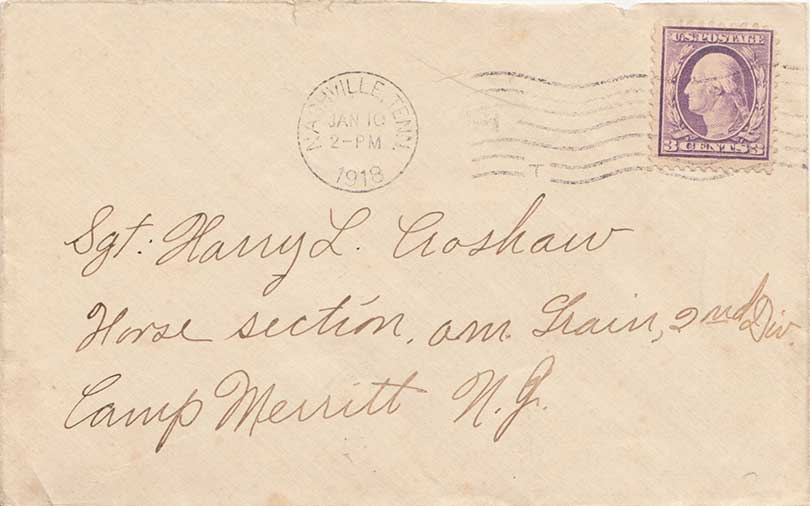 U.S. POSTAGE
3 CENTS 3
NASHVILLE, TENN.
JAN 10
2-PM
1918
T
Sgt. Harry L. Croshaw
Horse section, am. Train, 2nd Div.
Camp Merritt N.J.